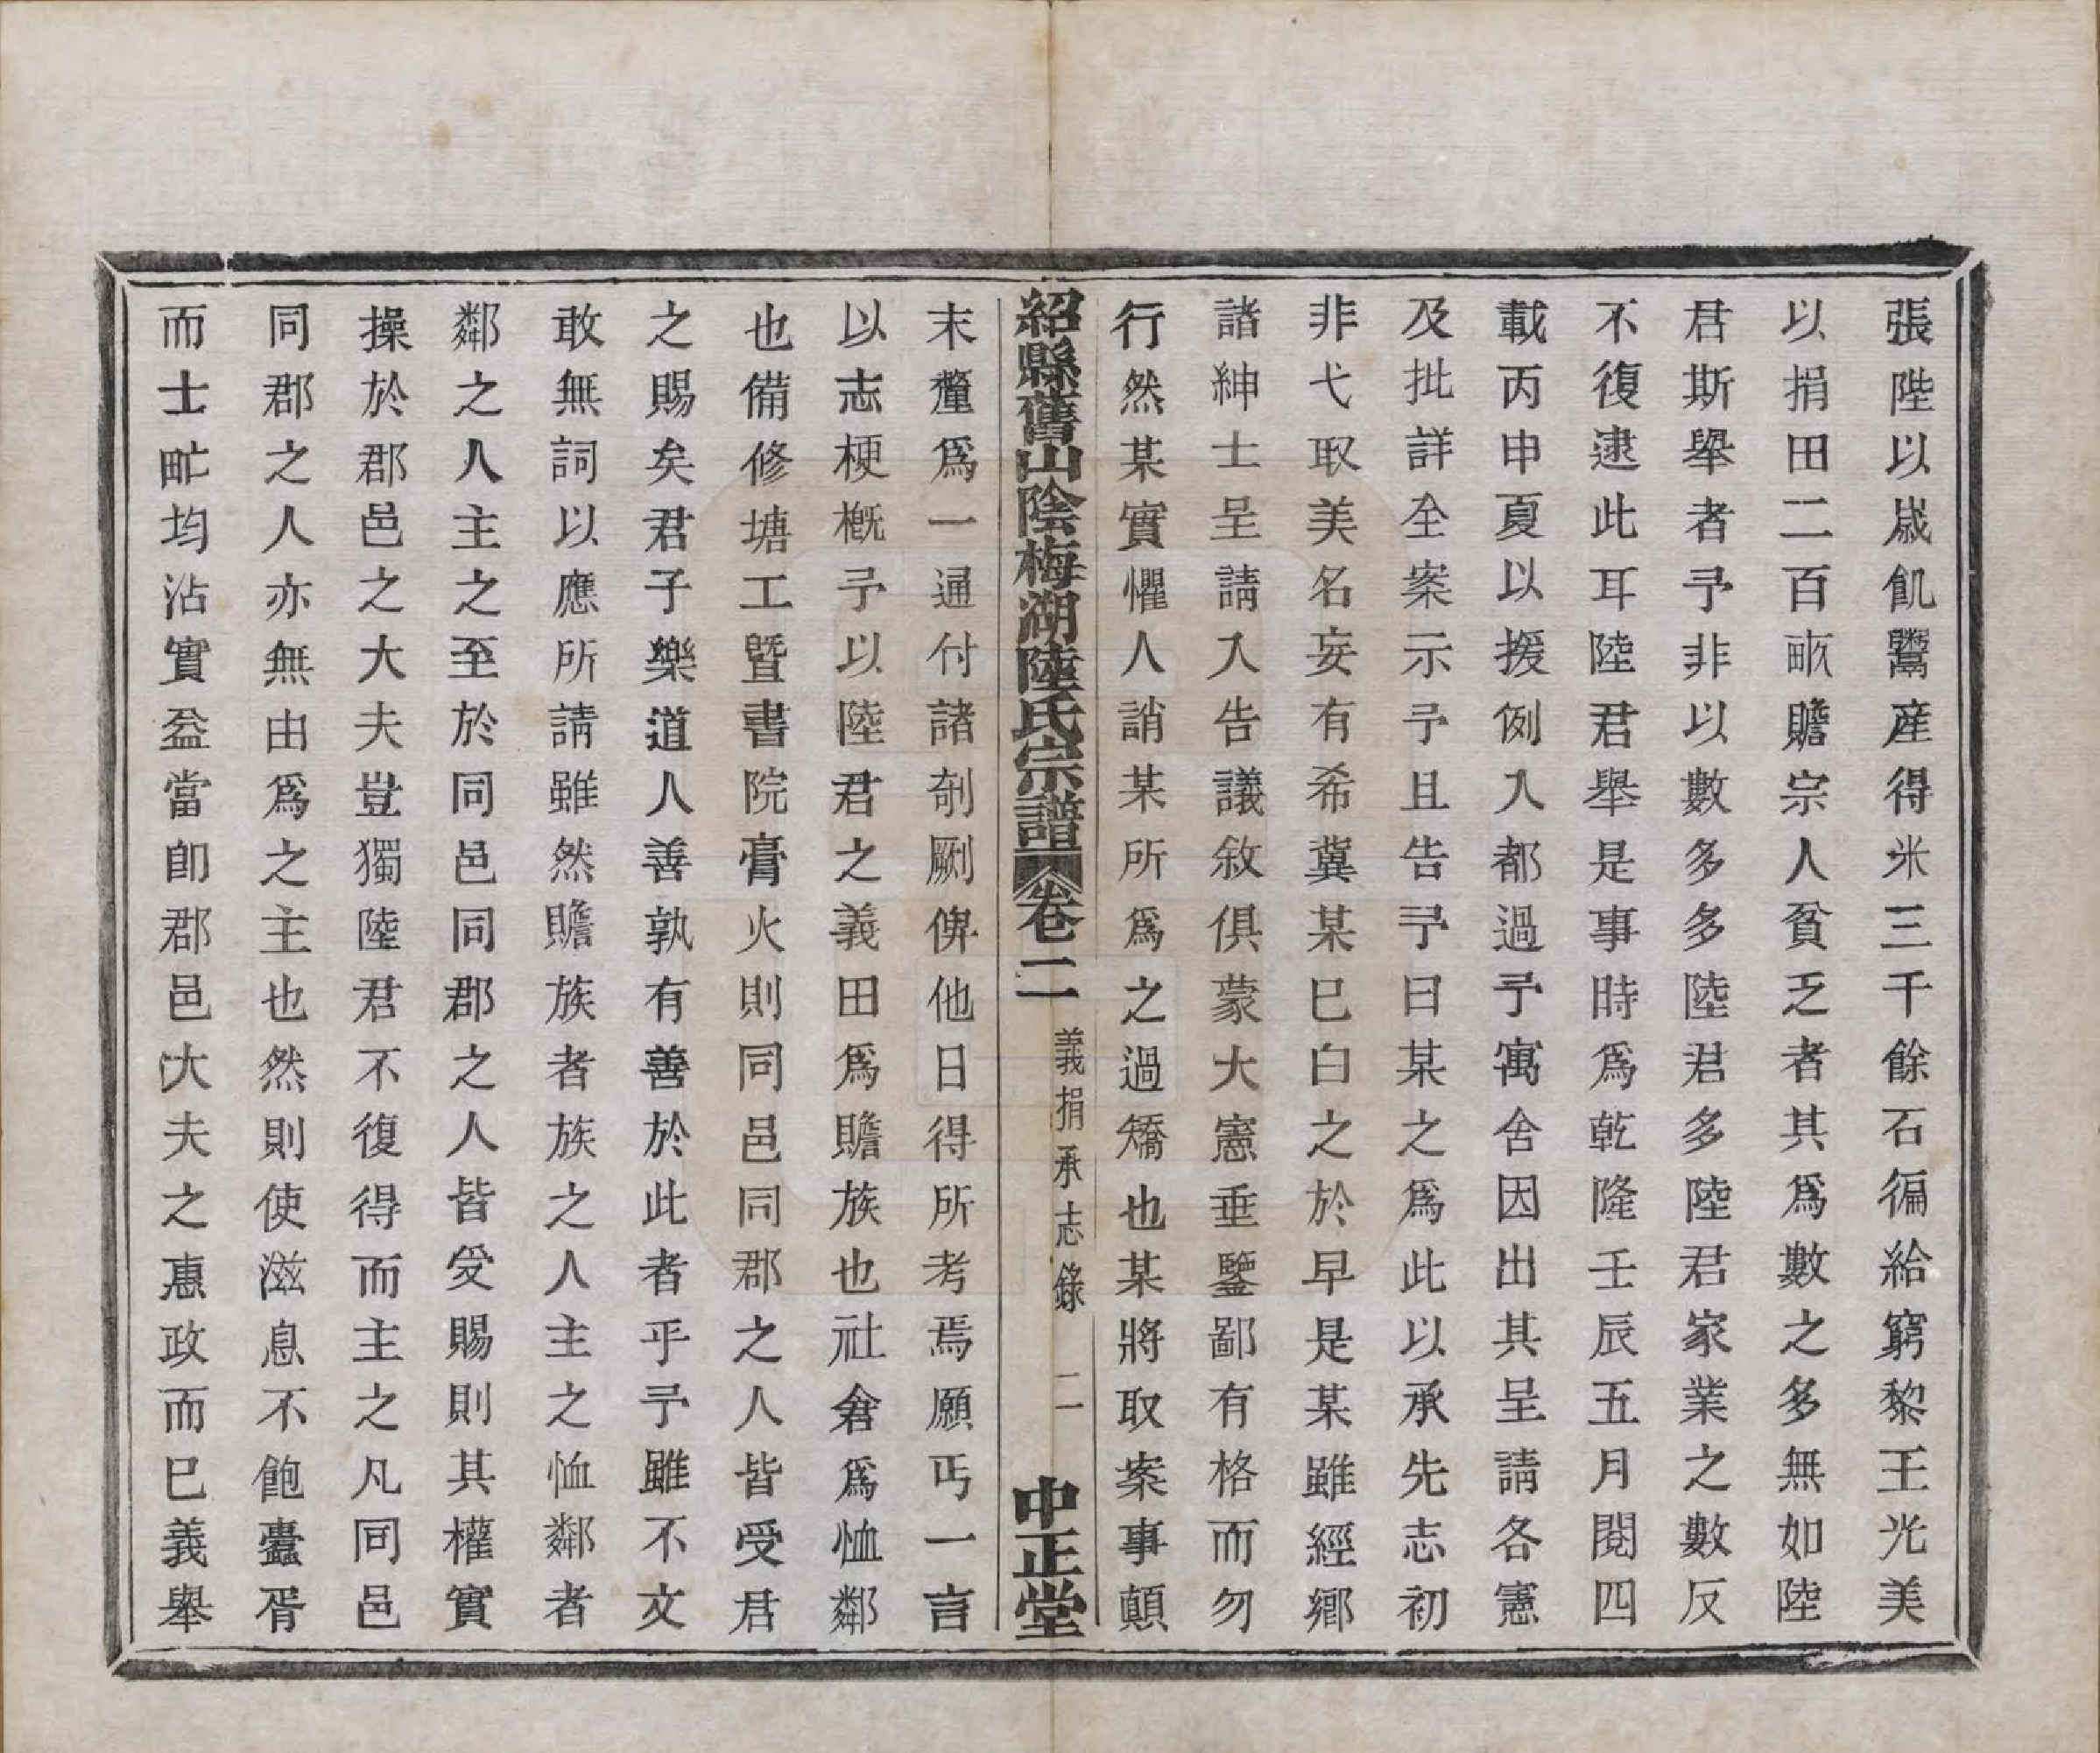 張陛以歲飢鬻產得米三千餘石徧給窮黎王光美
以捐田二百畝贍宗人貧乏者其爲數之多無如陸
君斯舉者予非以數多多陸君多陸君家業之數反
不復逮此耳陸君舉是事時爲乾隆壬辰五月閱四
載丙申夏以援例入都過予寓舍因出其呈請各憲
及批詳全案示予且告予曰某之爲此以承先志初
非弋取美名妄有希冀某已白之於早是某雖經鄉
諸紳士呈請入告議敘俱蒙大憲垂鑒鄙有格而勿
行然某實懼人誚某所爲之過矯也某將取案事顛
紹縣舊山陰梅湖陸氏宗譜 卷二 義捐承志錄 二 中正堂
末釐爲一通付諸剞劂俾他日得所考焉願丐一言
以志梗概予以陸君之義田爲贍族也社倉爲恤鄰
也備修塘工曁書院膏火則同邑同郡之人皆受君
之賜矣君子樂道人善孰有善於此者乎予雖不文
敢無詞以應所請雖然贍族者族之人主之恤鄰者
鄰之人主之至於同邑同郡之人皆受賜則其權實
操於郡邑之大夫豈獨陸君不復得而主之凡同邑
同郡之人亦無由爲之主也然則使滋息不飽蠹胥
而士甿均沾實益當卽郡邑大夫之惠政而已義舉